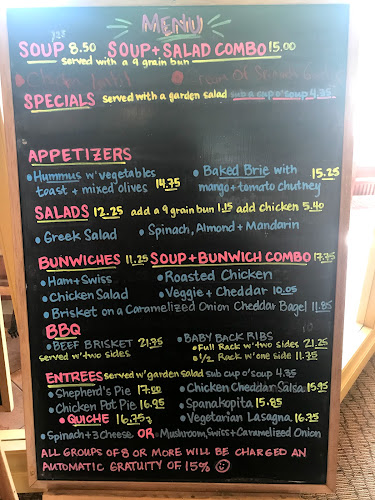 MENU
SOUP 8.50 SOUP+SALAD COMBO 15.00
served with a 9 grain bun
SPECIALS served with a garden salad sub a cup o' soup 4.35
APPETIZERS
•Hummus w' vegetables
toast + mixed olives 14.75
•Baked Brie with 15.25
mango+tomato chutney
SALADS 12.25 add a 9 grain bun 1.15 add chicken 5.40
•Greek Salad •Spinach, Almond + Mandarin
BUNWICHES 11.25 SOUP+BUNWICH COMBO 17.75
•Ham+Swiss •Roasted Chicken
•Chicken Salad •Veggie + Cheddar 10.05
•Brisket on a Caramelized Onion Cheddar Bagel 11.85
BBQ
•BEEF BRISKET 21.35
served w' two sides
•BABY BACK RIBS
•Full Rack w' two sides 21.25
•1/2 Rack w' one side 11.75
ENTREES served w' garden salad sub cup o' soup 4.35
•Shepherd's Pie 17.00 •Chicken Cheddar Salsa 15.95
•Chicken Pot Pie 16.95 •Spanakopita 15.85
•QUICHE 16.75 •Vegetarian Lasagna 16.75
•Spinach+3 Cheese OR •Mushroom, Swiss + Caramelized Onion
ALL GROUPS OF 8 OR MORE WILL BE CHARGED AN
AUTOMATIC GRATUITY OF 15%